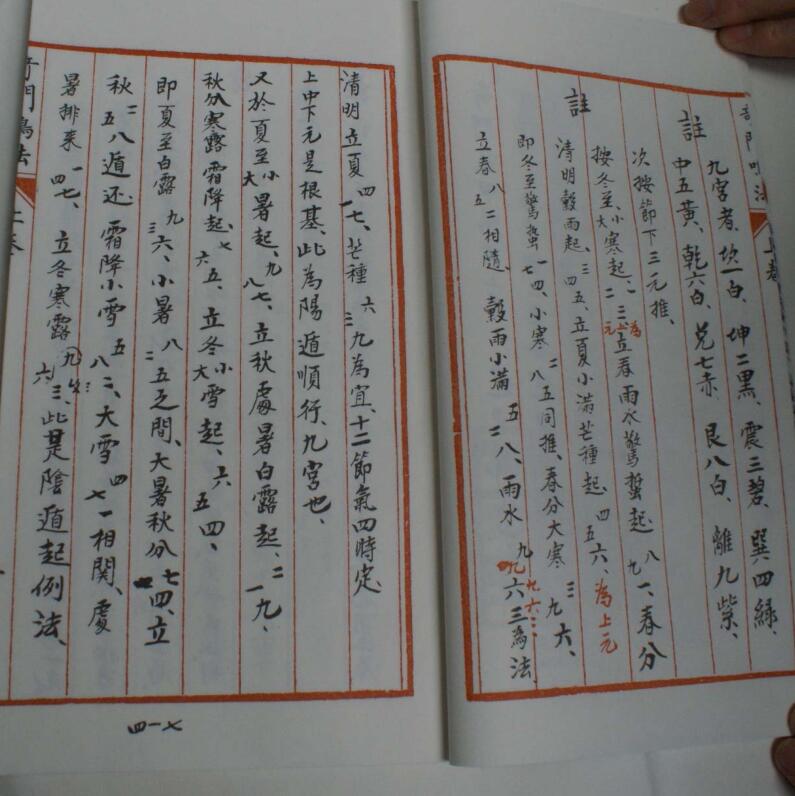 奇門鳴法 上卷
九宮者、坎一白、坤二黑、震三碧、巽四綠、
註 中五黃、乾六白、兌七赤、艮八白、離九紫、
次按節下三元推、
註 按冬至、大小寒起、一二三為上元立春雨水驚蟄起、八九一、春分
清明穀雨起、三四五、立夏小滿芒種起、四五六、為上元
即冬至驚蟄一七四、小寒二八五同推、春分大寒三九六、
立春八五二相隨、穀雨小滿五二八、雨水九六三為法、
九六三、
清明立夏四一七、芒種六三九為宜、十二節氣四時定、
上中下元是根基、此為陽遁順行、九宮也、
又於夏至大小暑起、九八七、立秋處暑白露起、二一九、
秋分寒露霜降起、七六五、立冬大小雪起、六五四、
即夏至白露九三六、小暑八二五之間、大暑秋分七一四、立
秋二五八遁还、霜降小雪五八二、大雪四七一相關、處
暑排来一四七、立冬寒露六九三、此是陰遁起例法、
奇門鳴法 上卷
四一七